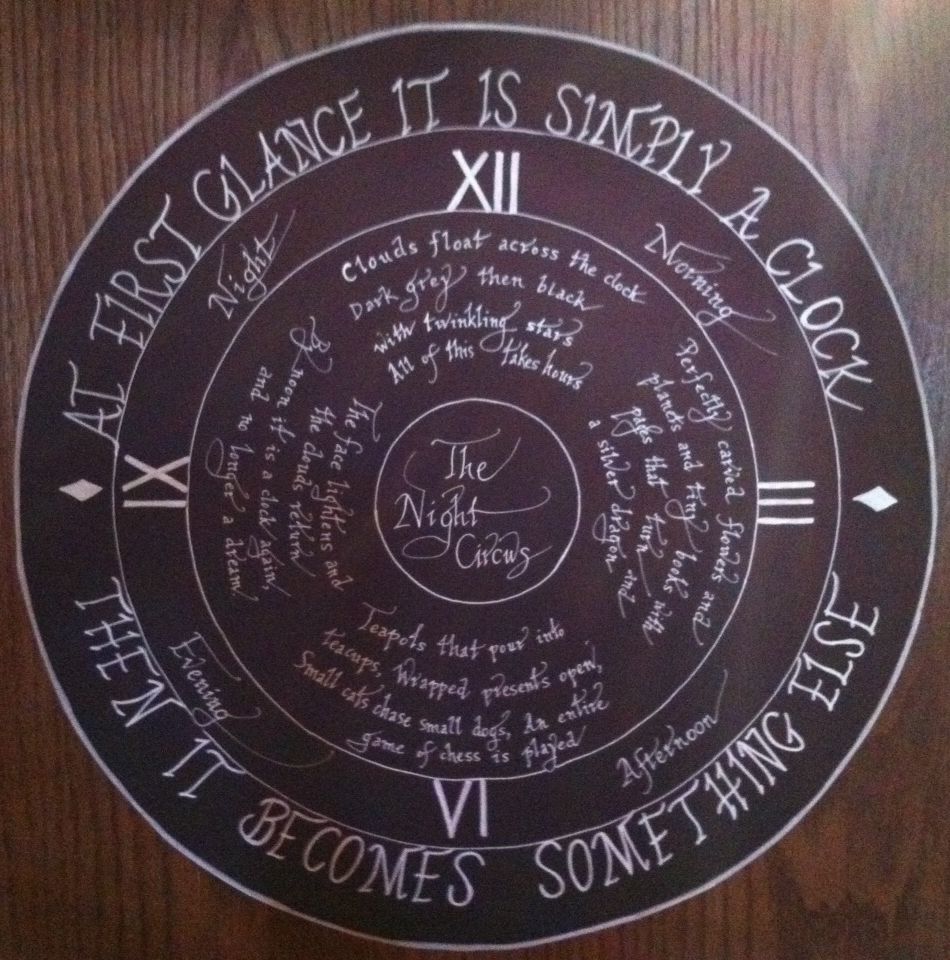 AT FIRST GLANCE IT IS SIMPLY A CLOCK
THEN IT BECOMES SOMETHING ELSE
XII
III
VI
IX
Night
Morning
Afternoon
Evening
Clouds float across the clock
Dark grey then black
with twinkling stars
All of this takes hours
Perfectly carved flowers and
planets and tiny books with
pages that turn and
a silver dragon
Teapots that pour into
teacups, Wrapped presents open,
Small cats chase small dogs, An entire
game of chess is played
The face lightens and
the clouds return
By noon it is a clock again,
and no longer a dream.
The
Night
Circus